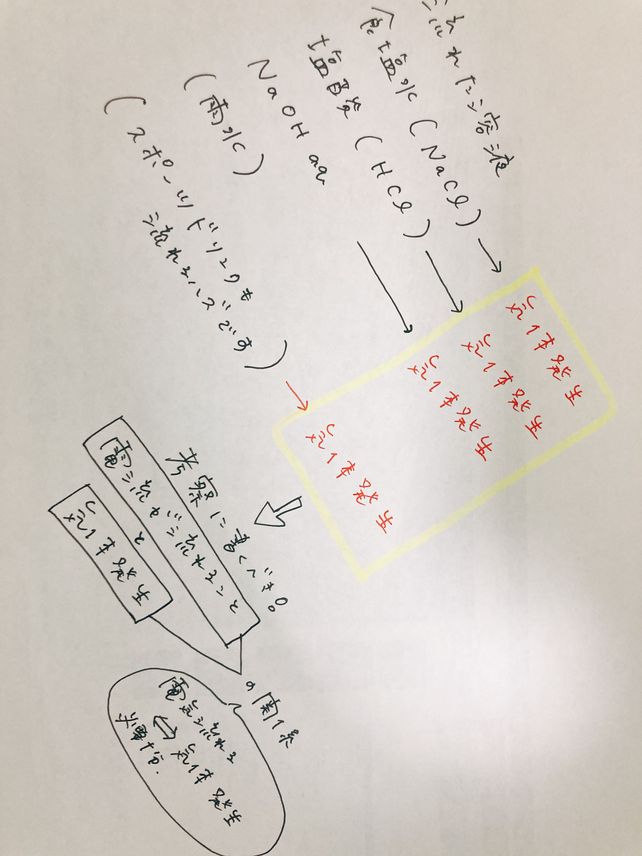 流れた溶液
食塩水(NaCl) → 気体発生
塩酸(HCl) → 気体発生
NaOH aq → 気体発生
(雨水)
(スポーツドリンクも
流れるハズです) → 気体発生
考察に書くべき。
電流が流れること
と
気体発生
の関係
電気流れる
⇔気体発生
必要十分.